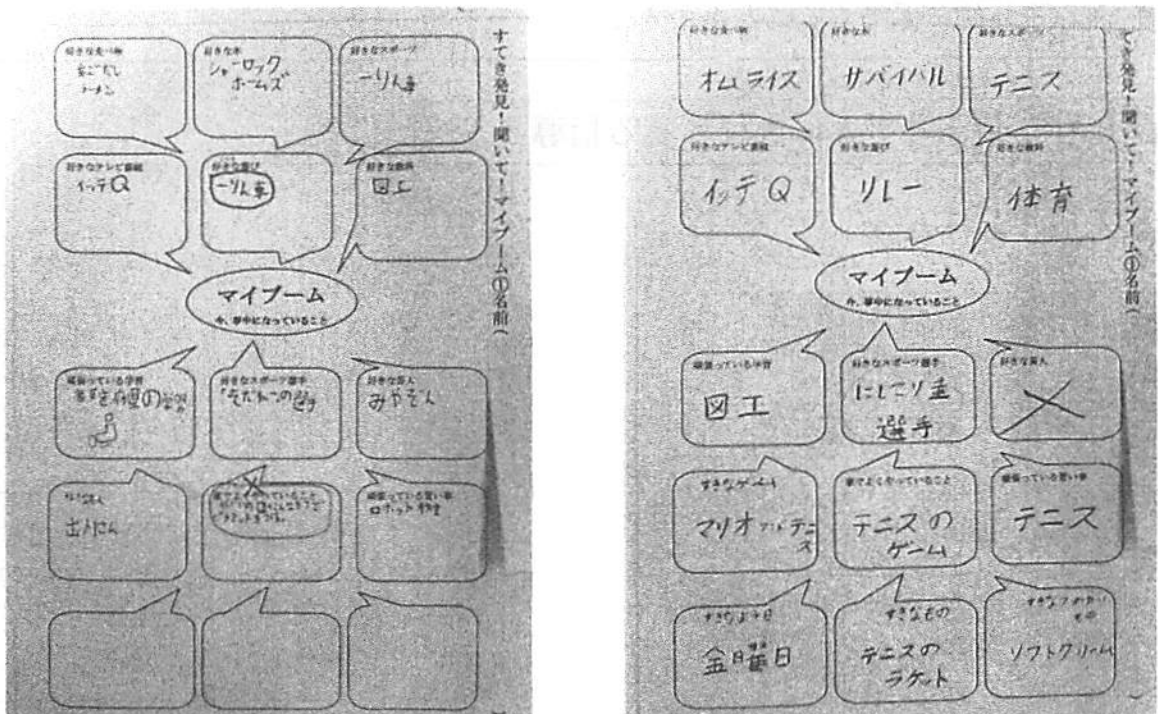 すてき発見！聞いて！マイブーム①名前（
好きな食べ物
好きな本
シャーロック
ホームズ
好きなスポーツ
一りん車
好きなテレビ番組
イッテQ
好きな遊び
一りん車
好きな教科
図工
マイブーム
今、夢中になっていること
頑張っている学習
好きなスポーツ選手
好きな芸人
みやぞん
家でよくやっていること
頑張っている習い事
ロボット教室
てき発見！聞いて！マイブーム①名前（
好きな食べ物
オムライス
好きな本
サバイバル
好きなスポーツ
テニス
好きなテレビ番組
イッテQ
好きな遊び
リレー
好きな教科
体育
マイブーム
今、夢中になっていること
頑張っている学習
図工
好きなスポーツ選手
にしこり圭
選手
好きな芸人
すきなゲーム
マリオ
テニ
ス
家でよくやっていること
テニスの
ゲーム
頑張っている習い事
テニス
すきなよう日
金曜日
すきなもの
テニスの
ラケット
ソフトクリーム